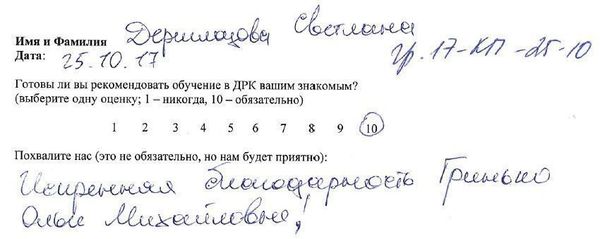 Имя и Фамилия Дермлазова Светлана
Дата: 25.10.17 гр. 17-КП-25-10
Готовы ли вы рекомендовать обучение в ДРК вашим знакомым?
(выберите одну оценку; 1 – никогда, 10 – обязательно)
1 2 3 4 5 6 7 8 9 10
Похвалите нас (это не обязательно, но нам будет приятно):
Искренняя благодарность Гринько
Ольге Михайловне!